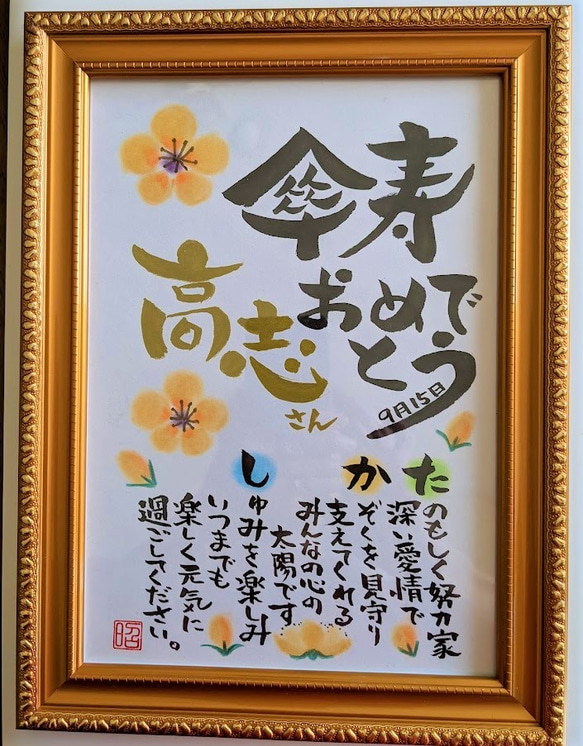 傘寿
おめで
とう
9月15日
高志
さん
たのもしく努力家
深い愛情で
かぞくを見守り
支えてくれる
みんなの心の
太陽です
しゅみを楽しみ
いつまでも
楽しく元気に
過ごしてください。
昭